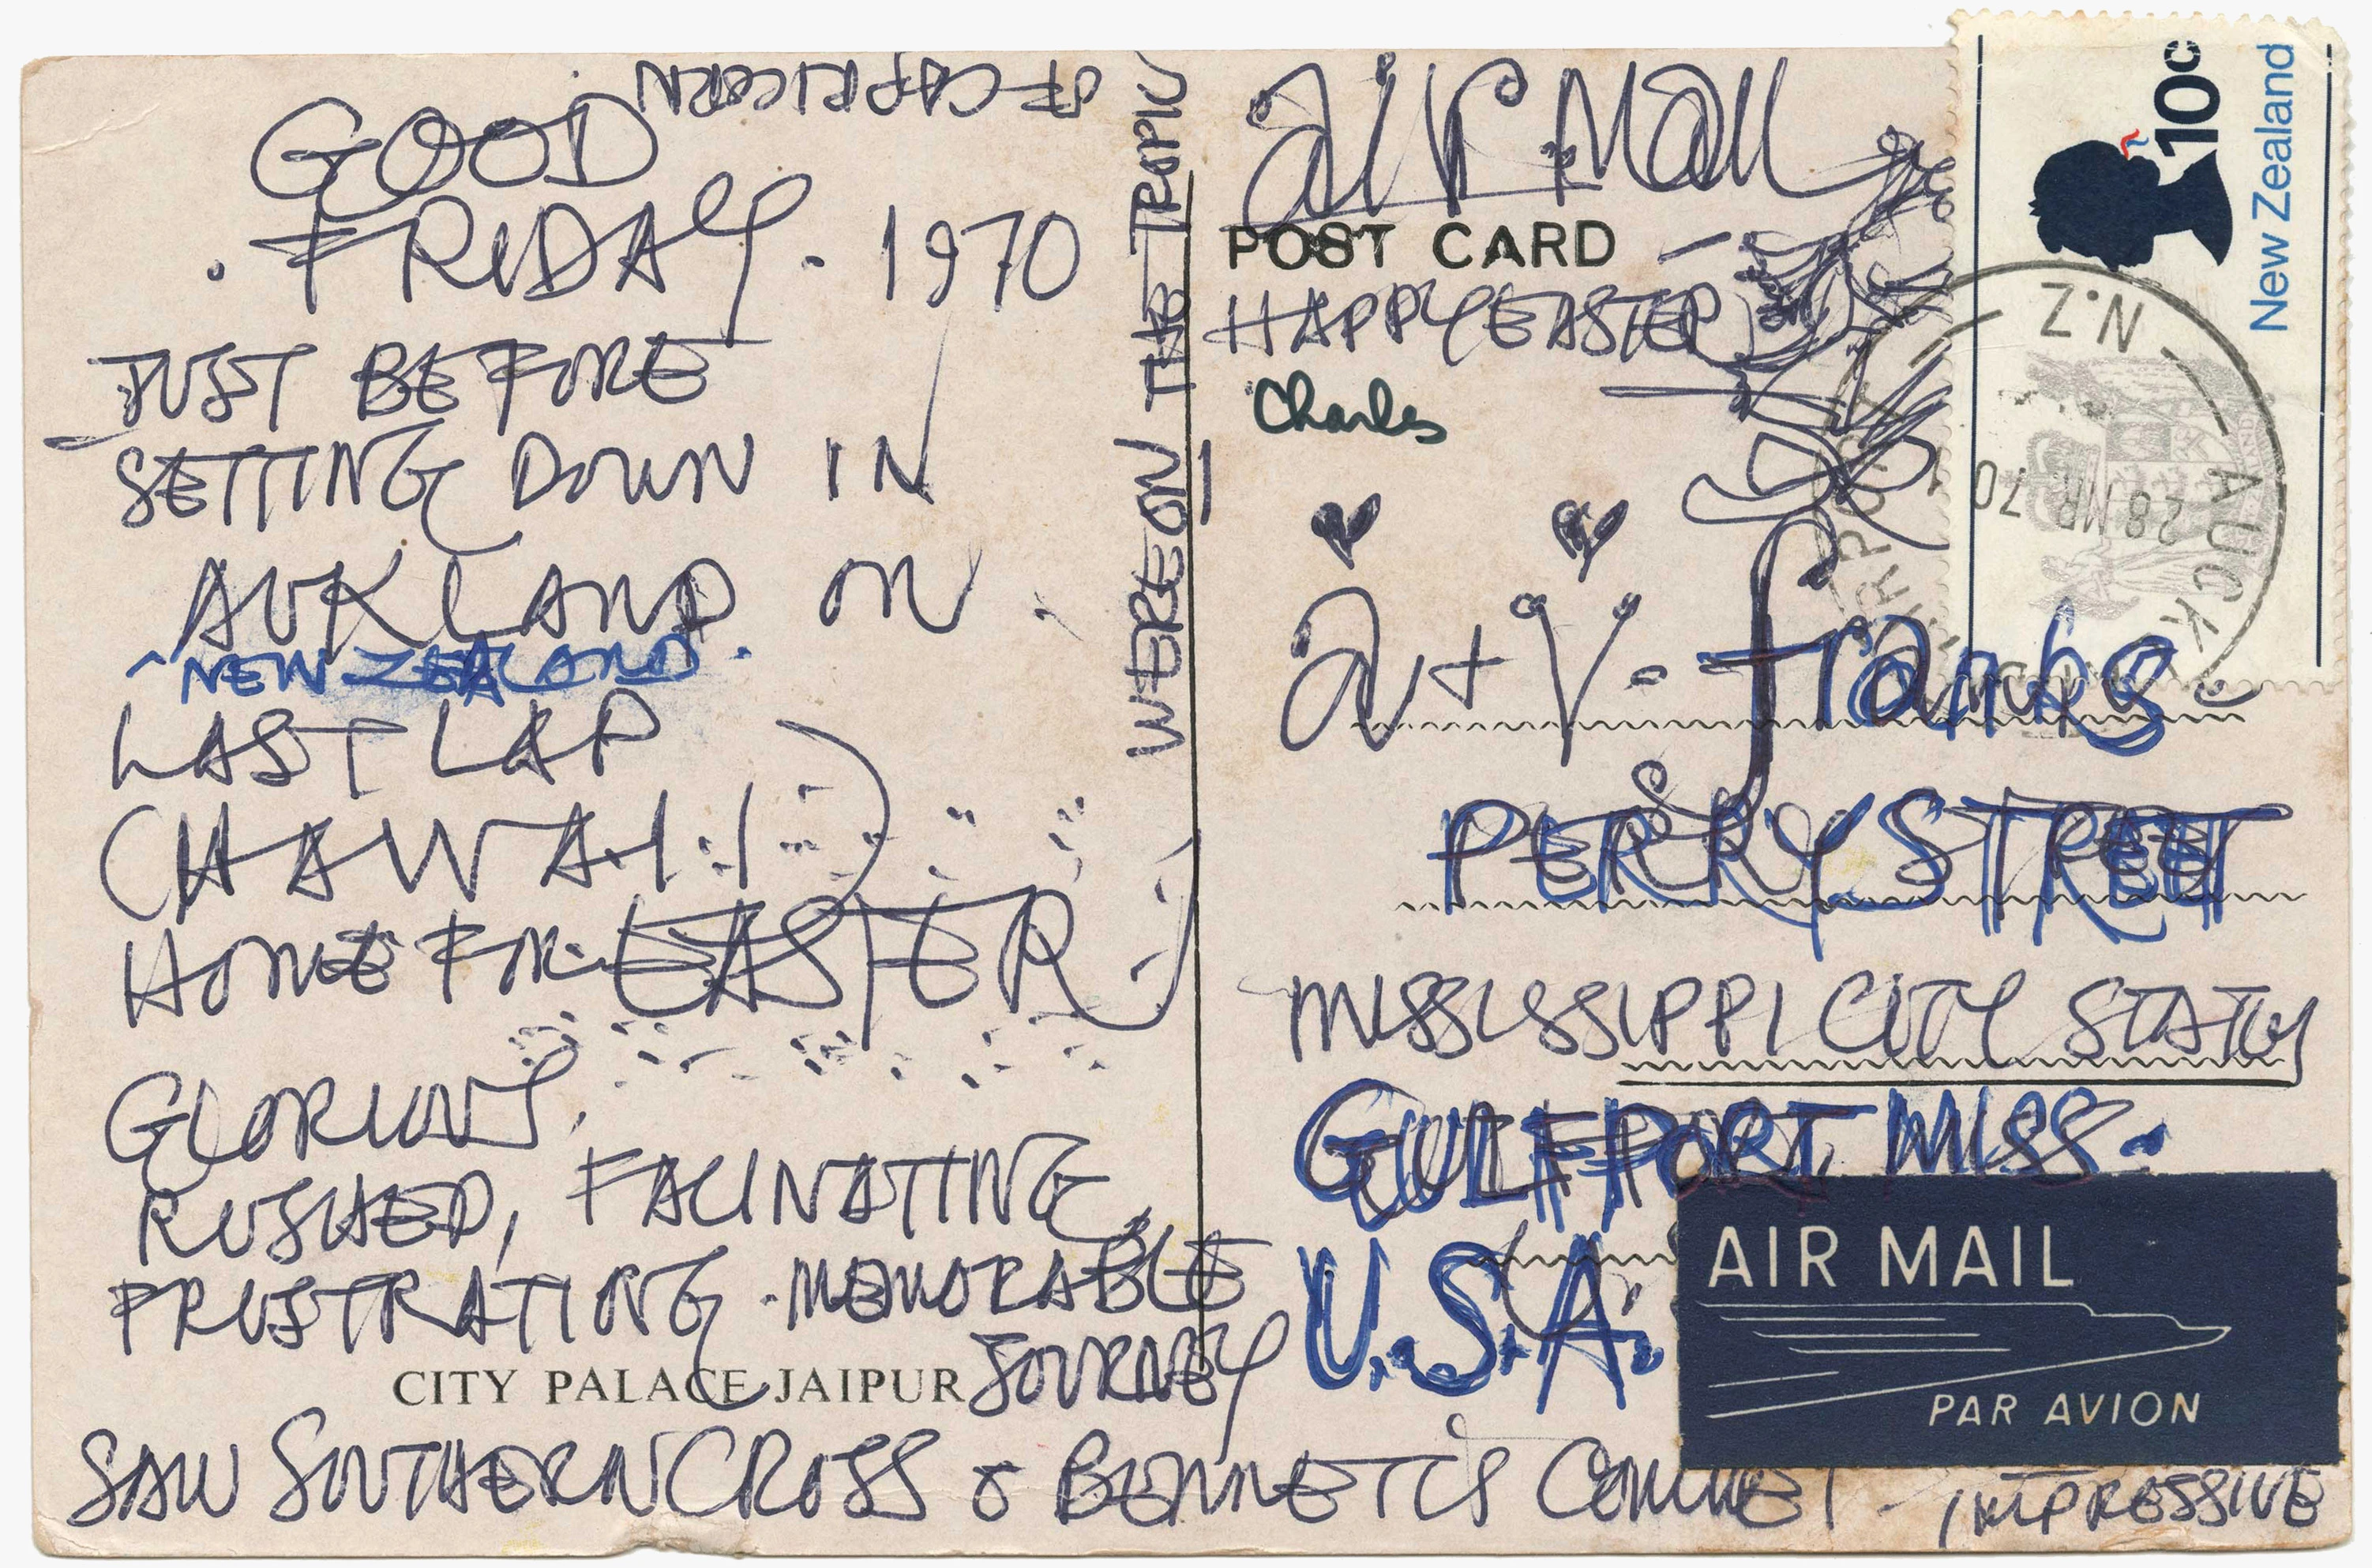 GOOD
. FRIDAY. 1970
JUST BEFORE
SETTING DOWN IN
AUKLAND ON
^ NEW ZEALAND.
LAST LAP
(HAWAII)
HOME FOR EASTER
GLORIOUS,
RUSHED, FACINATING,
FRUSTRATING. MEMORABLE
JOURNEY
CITY PALACE JAIPUR
SAW SOUTHERN CROSS & BENNETT'S COMMET - IMPRESSIVE
WERE ON THE TROPIC
OF CAPRICORN
air Mail
POST CARD
HAPPY EASTER
Charles
a + V. franks.
PERRY STREET
MISSISSIPPI CITY STATION
GULFPORT MISS.
U.S.A.
10c
New Zealand
N.Z.
AUCK
28 MR 70
AIRPORT
AIR MAIL
PAR AVION